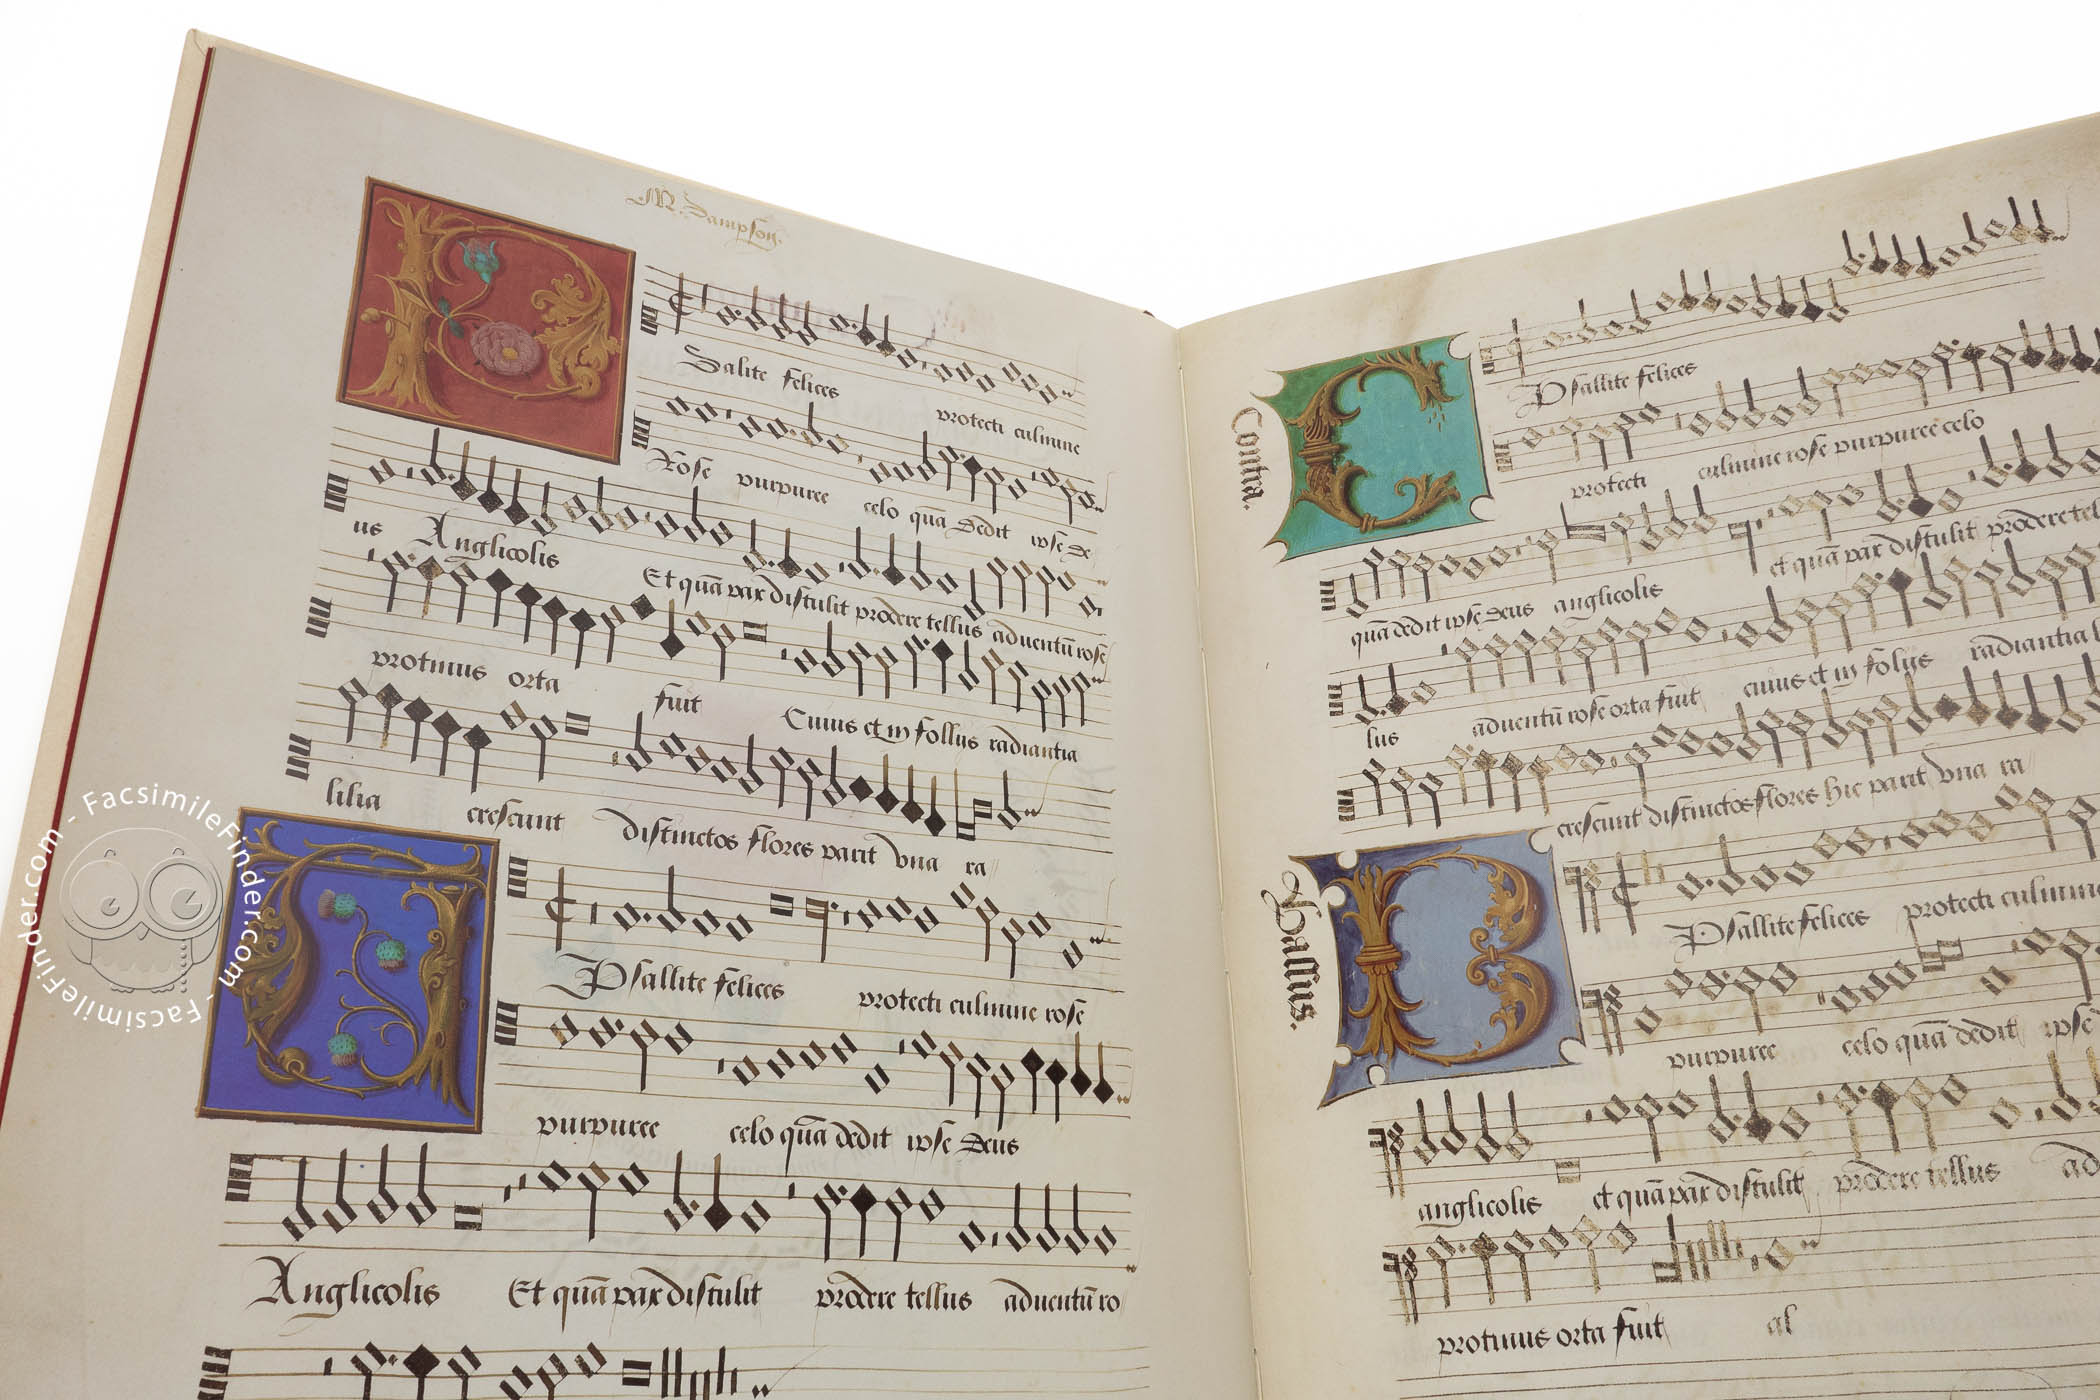 M. Sampson.
Psalite felices protecti culmine
Rose purpuree celo quā dedit ipse de
us Anglicolis Et quā pax distulit prodere tellus aduentū rose
protinus orta fuit Cuius et in follijs radiantia
lilia crescunt distinctos flores parit vna ra
Psallite felices protecti culmine rose
purpuree celo quā dedit ipse Deus
Anglicolis Et quā pax distulit prodere tellus aduentū ro
Contra.
Psallite felices
protecti culmine rose purpuree celo
quā dedit ipse deus anglicolis et quā pax distulit prodere tel
lus aduentū rose orta fuit cuius et in folijs radiantia
crescunt distinctos flores hic parit vna ra
Bassus.
Psallite felices protecti culmine
purpuree celo quā dedit ipse
anglicolis et quā pax distulit prodere tellus ad
protinus orta fuit al
FacsimileFinder.com - FacsimileFinder.com -